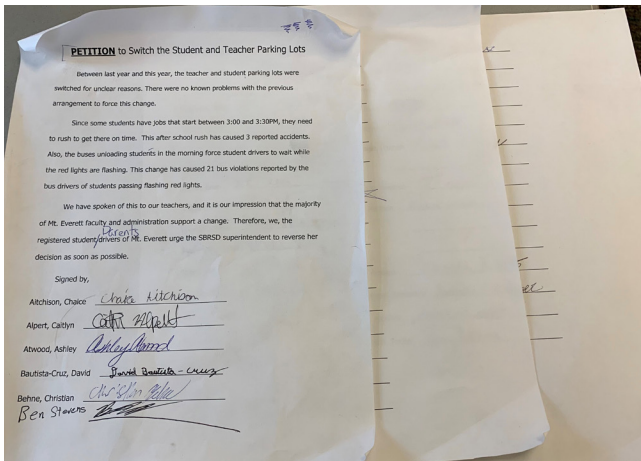 PETITION to Switch the Student and Teacher Parking Lots
Between last year and this year, the teacher and student parking lots were
switched for unclear reasons. There were no known problems with the previous
arrangement to force this change.
Since some students have jobs that start between 3:00 and 3:30PM, they need
to rush to get there on time. This after school rush has caused 3 reported accidents.
Also, the buses unloading students in the morning force student drivers to wait while
the red lights are flashing. This change has caused 21 bus violations reported by the
bus drivers of students passing flashing red lights.
We have spoken of this to our teachers, and it is our impression that the majority
of Mt. Everett faculty and administration support a change. Therefore, we, the
Parents
registered student/drivers of Mt. Everett urge the SBRSD superintendent to reverse her
decision as soon as possible.
Signed by,
Aitchison, Chaice Chaice Aitchison
Alpert, Caitlyn
Atwood, Ashley Ashley Atwood
Bautista-Cruz, David David Bautista-Cruz
Behne, Christian Christian
Ben Stevens